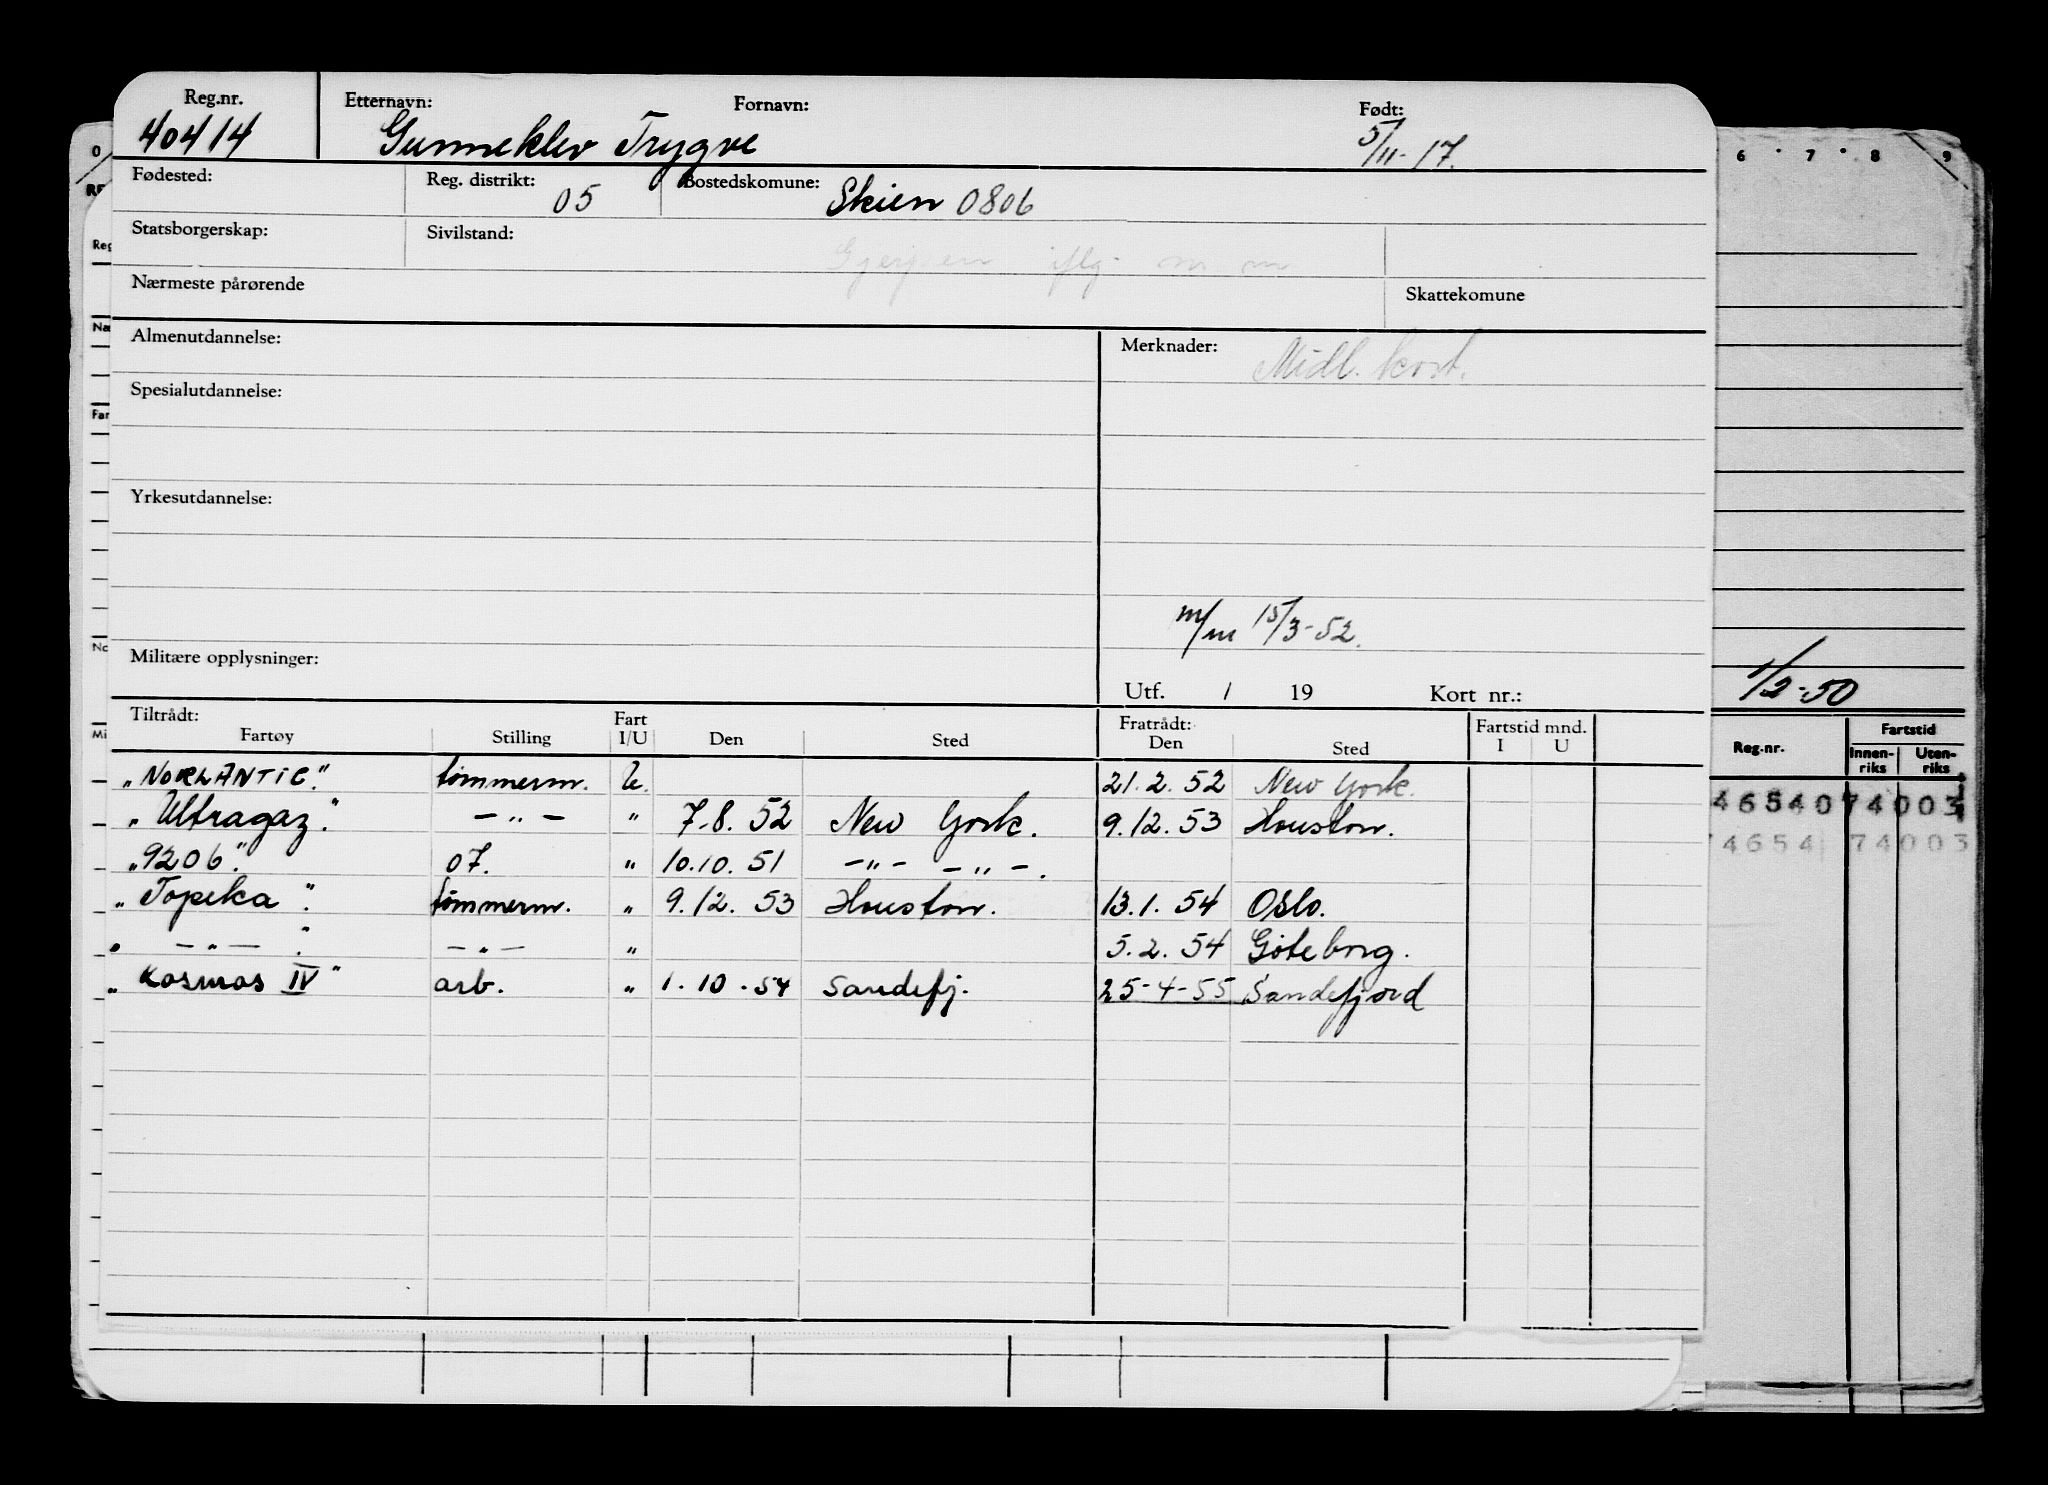 Reg.nr. Etternavn: Fornavn: Født:
40414 Gunneklev Trygve 5/11-17.
Fødested: Reg. distrikt: 05 Bostedskomune: Skien 0806
Statsborgerskap: Sivilstand:
Gjerpen iflg. m m
Nærmeste pårørende Skattekomune
Almenutdannelse: Merknader: Midl. kort.
Spesialutdannelse:
Yrkesutdannelse:
m/m 15/3-52.
Militære opplysninger:
Utf. / 19 Kort nr.:
Tiltrådt: Fratrådt:
Fartøy Stilling Fart I/U Den Sted Den Sted Fartstid mnd. I U
"NORLANTIC". tömmerm. U. 21.2.52 New York.
"Ultragaz". -"- " 7.8.52 New York. 9.12.53 Houston.
"9206". 07. " 10.10.51 -"- -"-.
"Topeka". tömmerm. " 9.12.53 Houston. 13.1.54 Oslo.
" -"- ". -"- " 5.2.54 Göteborg.
"Kosmos IV" arb. " 1.10.54 Sandefj. 25-4-55 Sandefjord
6 7 8 9
1/2-50
Reg.nr. Fartstid
Innen-riks Uten-riks
46540 74003
74654 74003